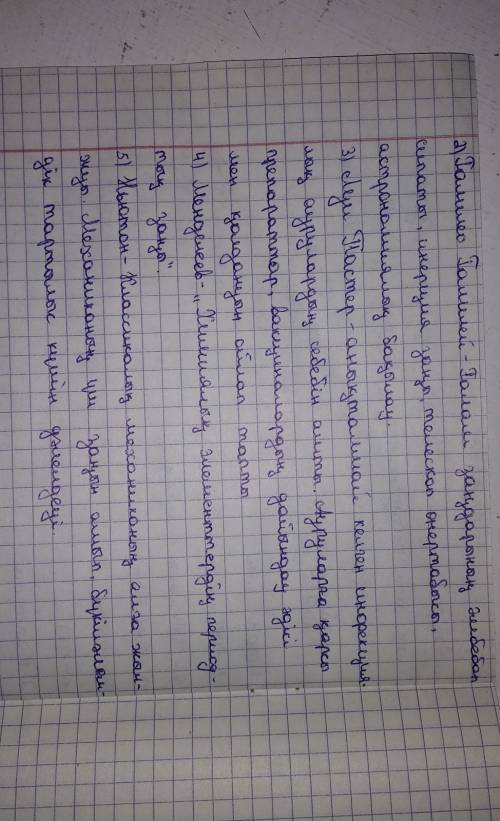 2) Галилео Галилей - Ғалам заңдарының әмбебап
сипаты, инерция заңы, телескоп өнертабысы,
астрономиялық бақылау.
3) Луи Пастер - анықталмай келген инфекция-
лық аурулардың себебін ашты. Ауруларға қарсы
препараттар, вакциналардың дайындау әдісі
мен қолдануын ойлап тапты
4) Менделеев - „Химиялық элементтердің период-
тық заңы".
5) Ньютон - Классикалық механиканың алға жыл-
жуы. Механиканың үш заңын ашып, бүкіләлем-
дік тартылыс күшін дәлелдеді.